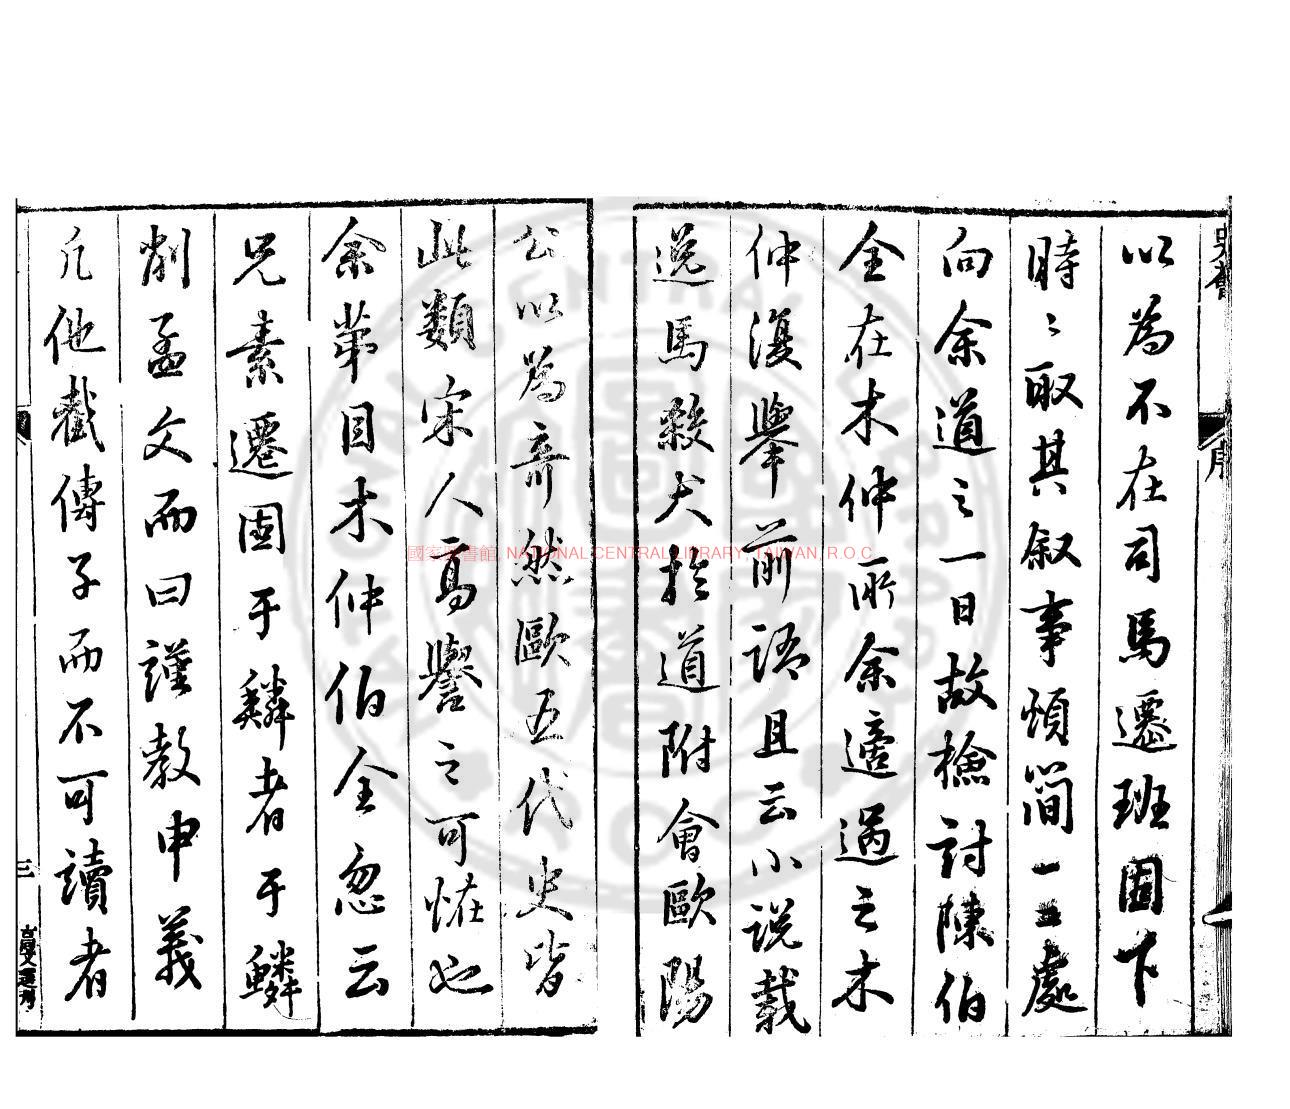 以為不在司馬遷班固下
時〻取其叙事煩簡一二處
向余道之一日故檢討陳伯
全在木仲所余適過之木
仲復舉前語且云小說載
逸馬殺犬於道附會歐陽
公以為奇然歐五代史皆
此類宋人寡譽之可恠也
余苐目木仲伯全忽云
兄素遷固于麟者于鱗
削孟文而曰謹教申義
凡他截傳子而不可讀者
序
三
國家圖書館, NATIONAL CENTRAL LIBRARY, TAIWAN, R.O.C